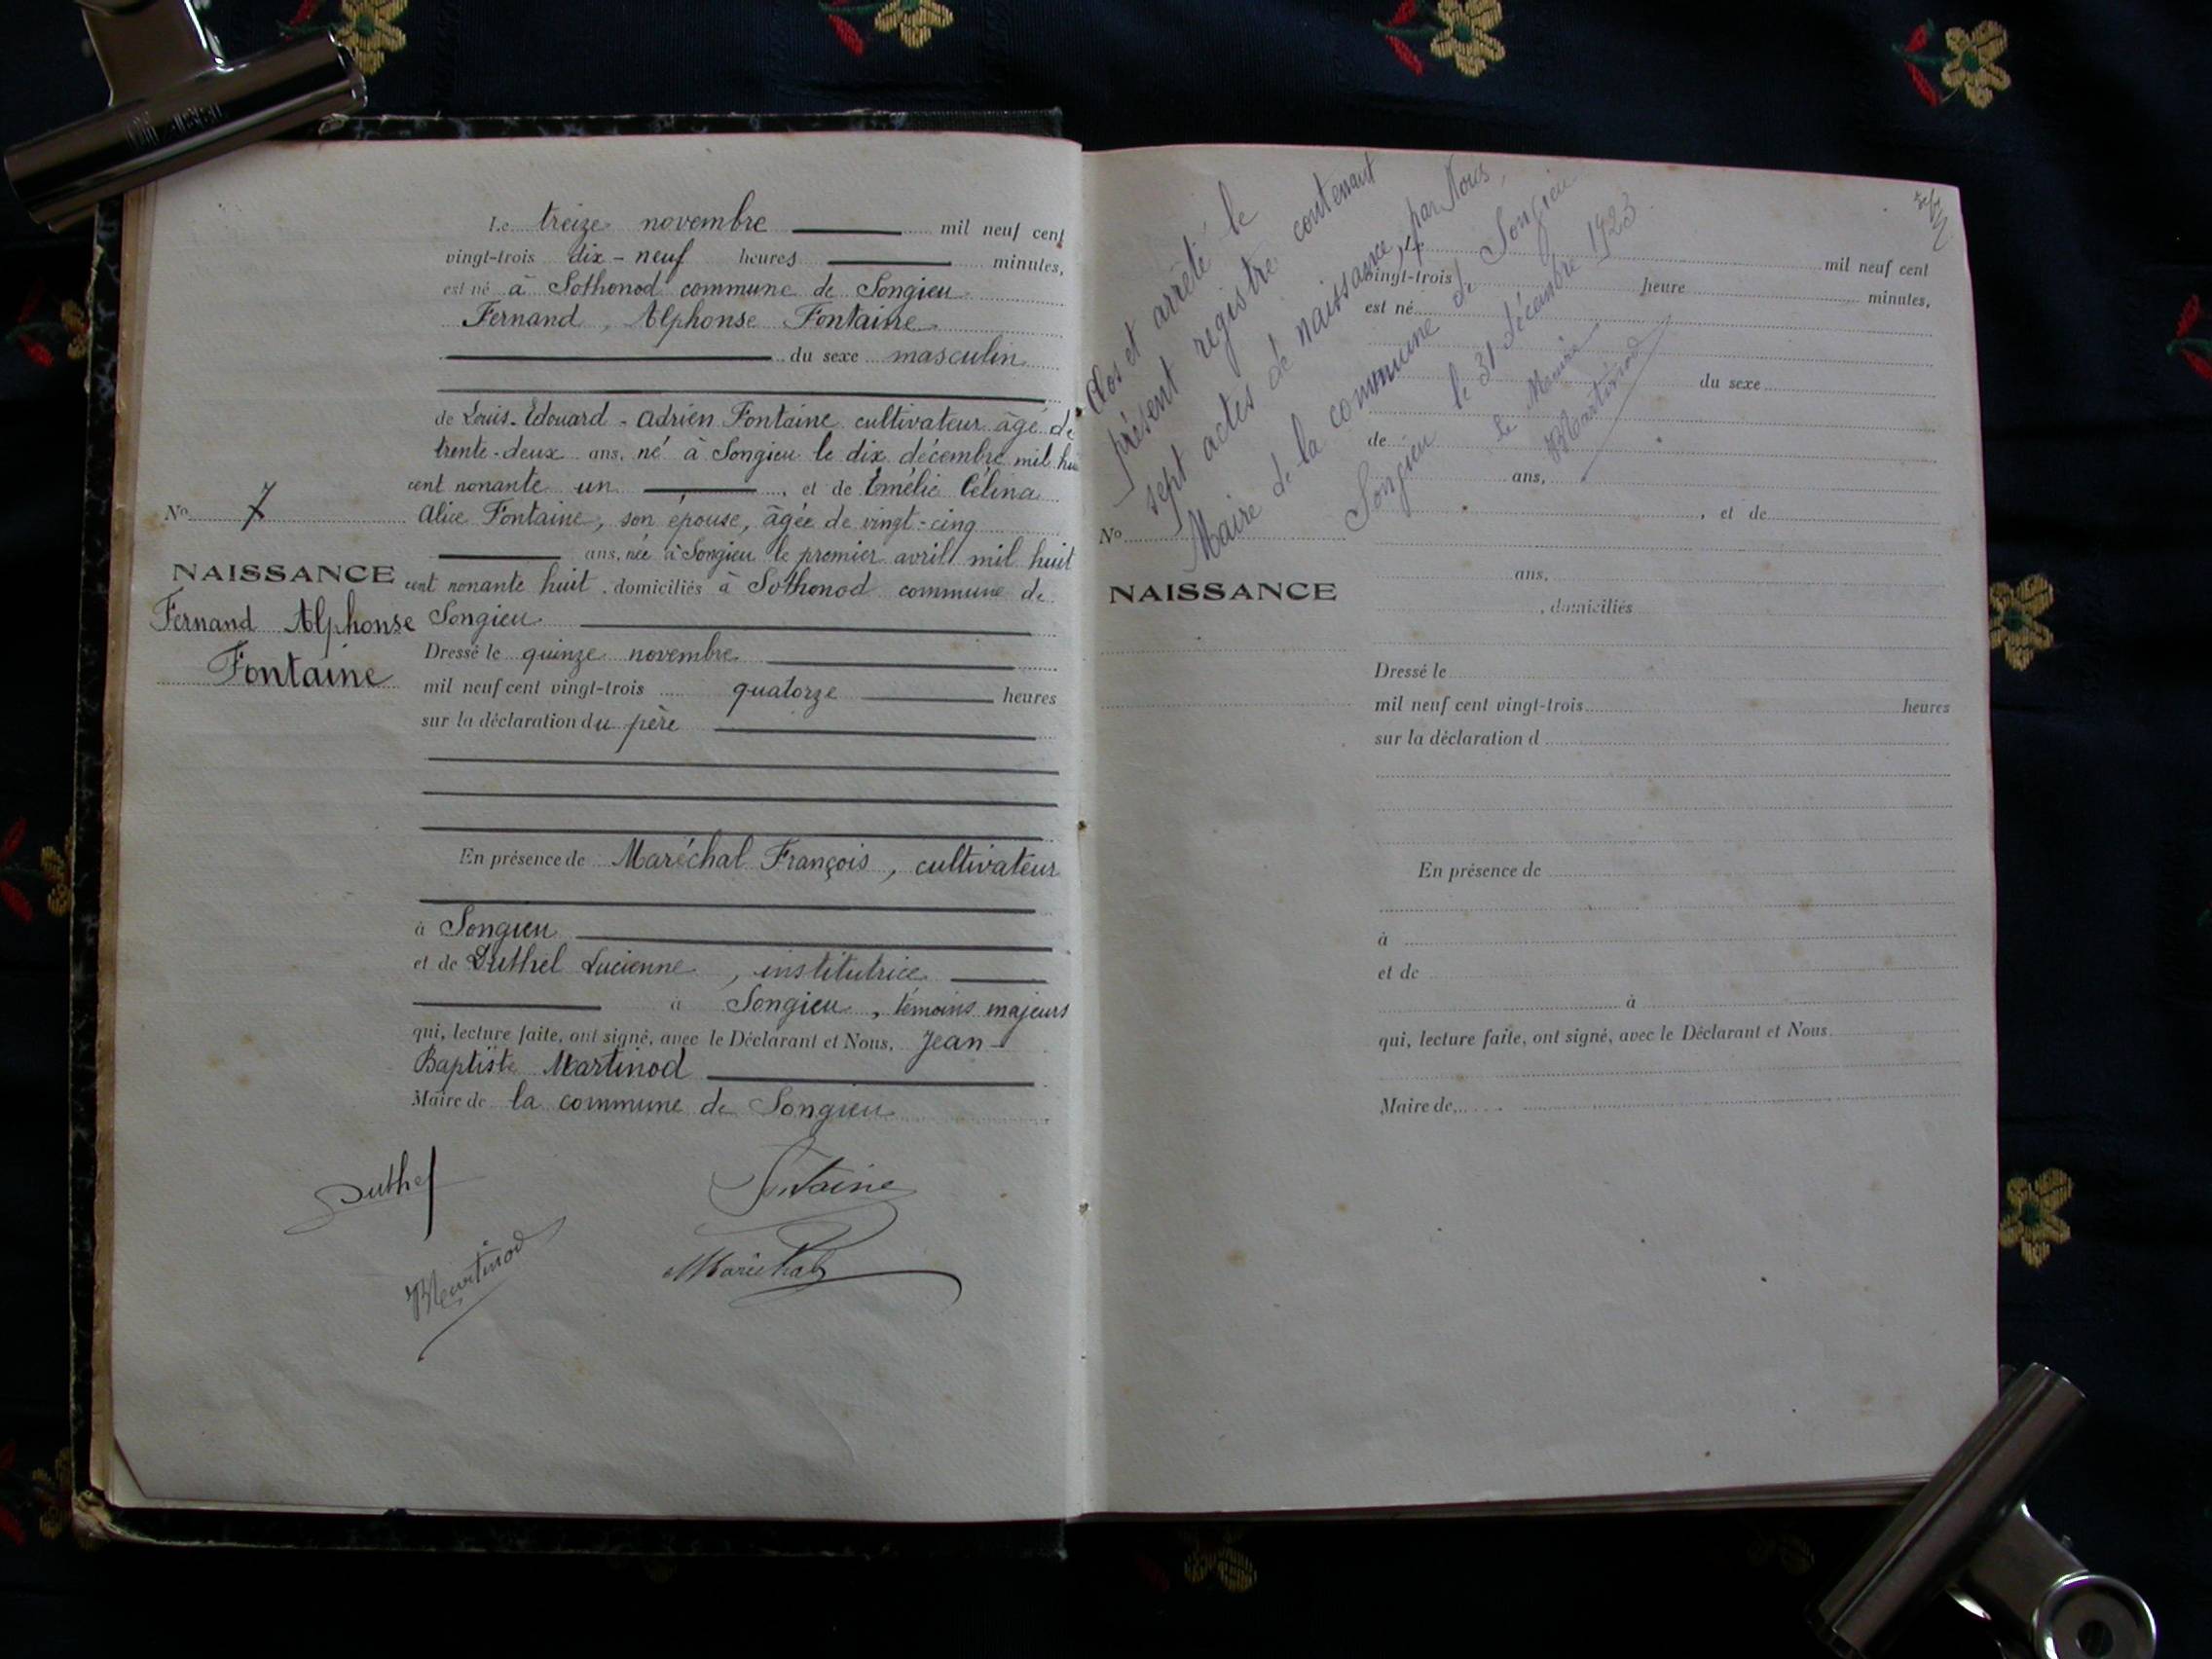 Le treize novembre mil neuf cent
vingt-trois dix-neuf heures minutes,
est né à Sothonod commune de Songieu
Fernand, Alphonse Fontaine
du sexe masculin
de Louis-Edouard-Adrien Fontaine cultivateur âgé de
trente-deux ans, né à Songieu le dix décembre mil hui
cent nonante un , et de Emélie Célina
Alice Fontaine, son épouse, âgée de vingt-cinq
ans, née à Songieu le premier avril mil huit
cent nonante huit , domiciliés à Sothonod commune de
Songieu
Dressé le quinze novembre
mil neuf cent vingt-trois quatorze heures
sur la déclaration du père
En présence de Maréchal François, cultivateur
à Songieu
et de Duthel Lucienne, institutrice
à Songieu, témoins majeurs
qui, lecture faite, ont signé, avec le Déclarant et Nous, Jean-
Baptiste Martinod
Maire de la commune de Songieu
No 7
NAISSANCE
Fernand Alphonse
Fontaine
Duthel
Fontaine
Martinod
Maréchal
Clos et arrêté le
présent registre contenant
sept actes de naissance, par Nous,
Maire de la commune de Songieu
Songieu le 31 décembre 1923
Le Maire
Martinod
Le mil neuf cent
vingt-trois heure minutes,
est né
du sexe
de
ans,
, et de
ans,
, domiciliés
Dressé le
mil neuf cent vingt-trois heures
sur la déclaration d
En présence de
à
et de
à
qui, lecture faite, ont signé, avec le Déclarant et Nous
Maire de
No
NAISSANCE